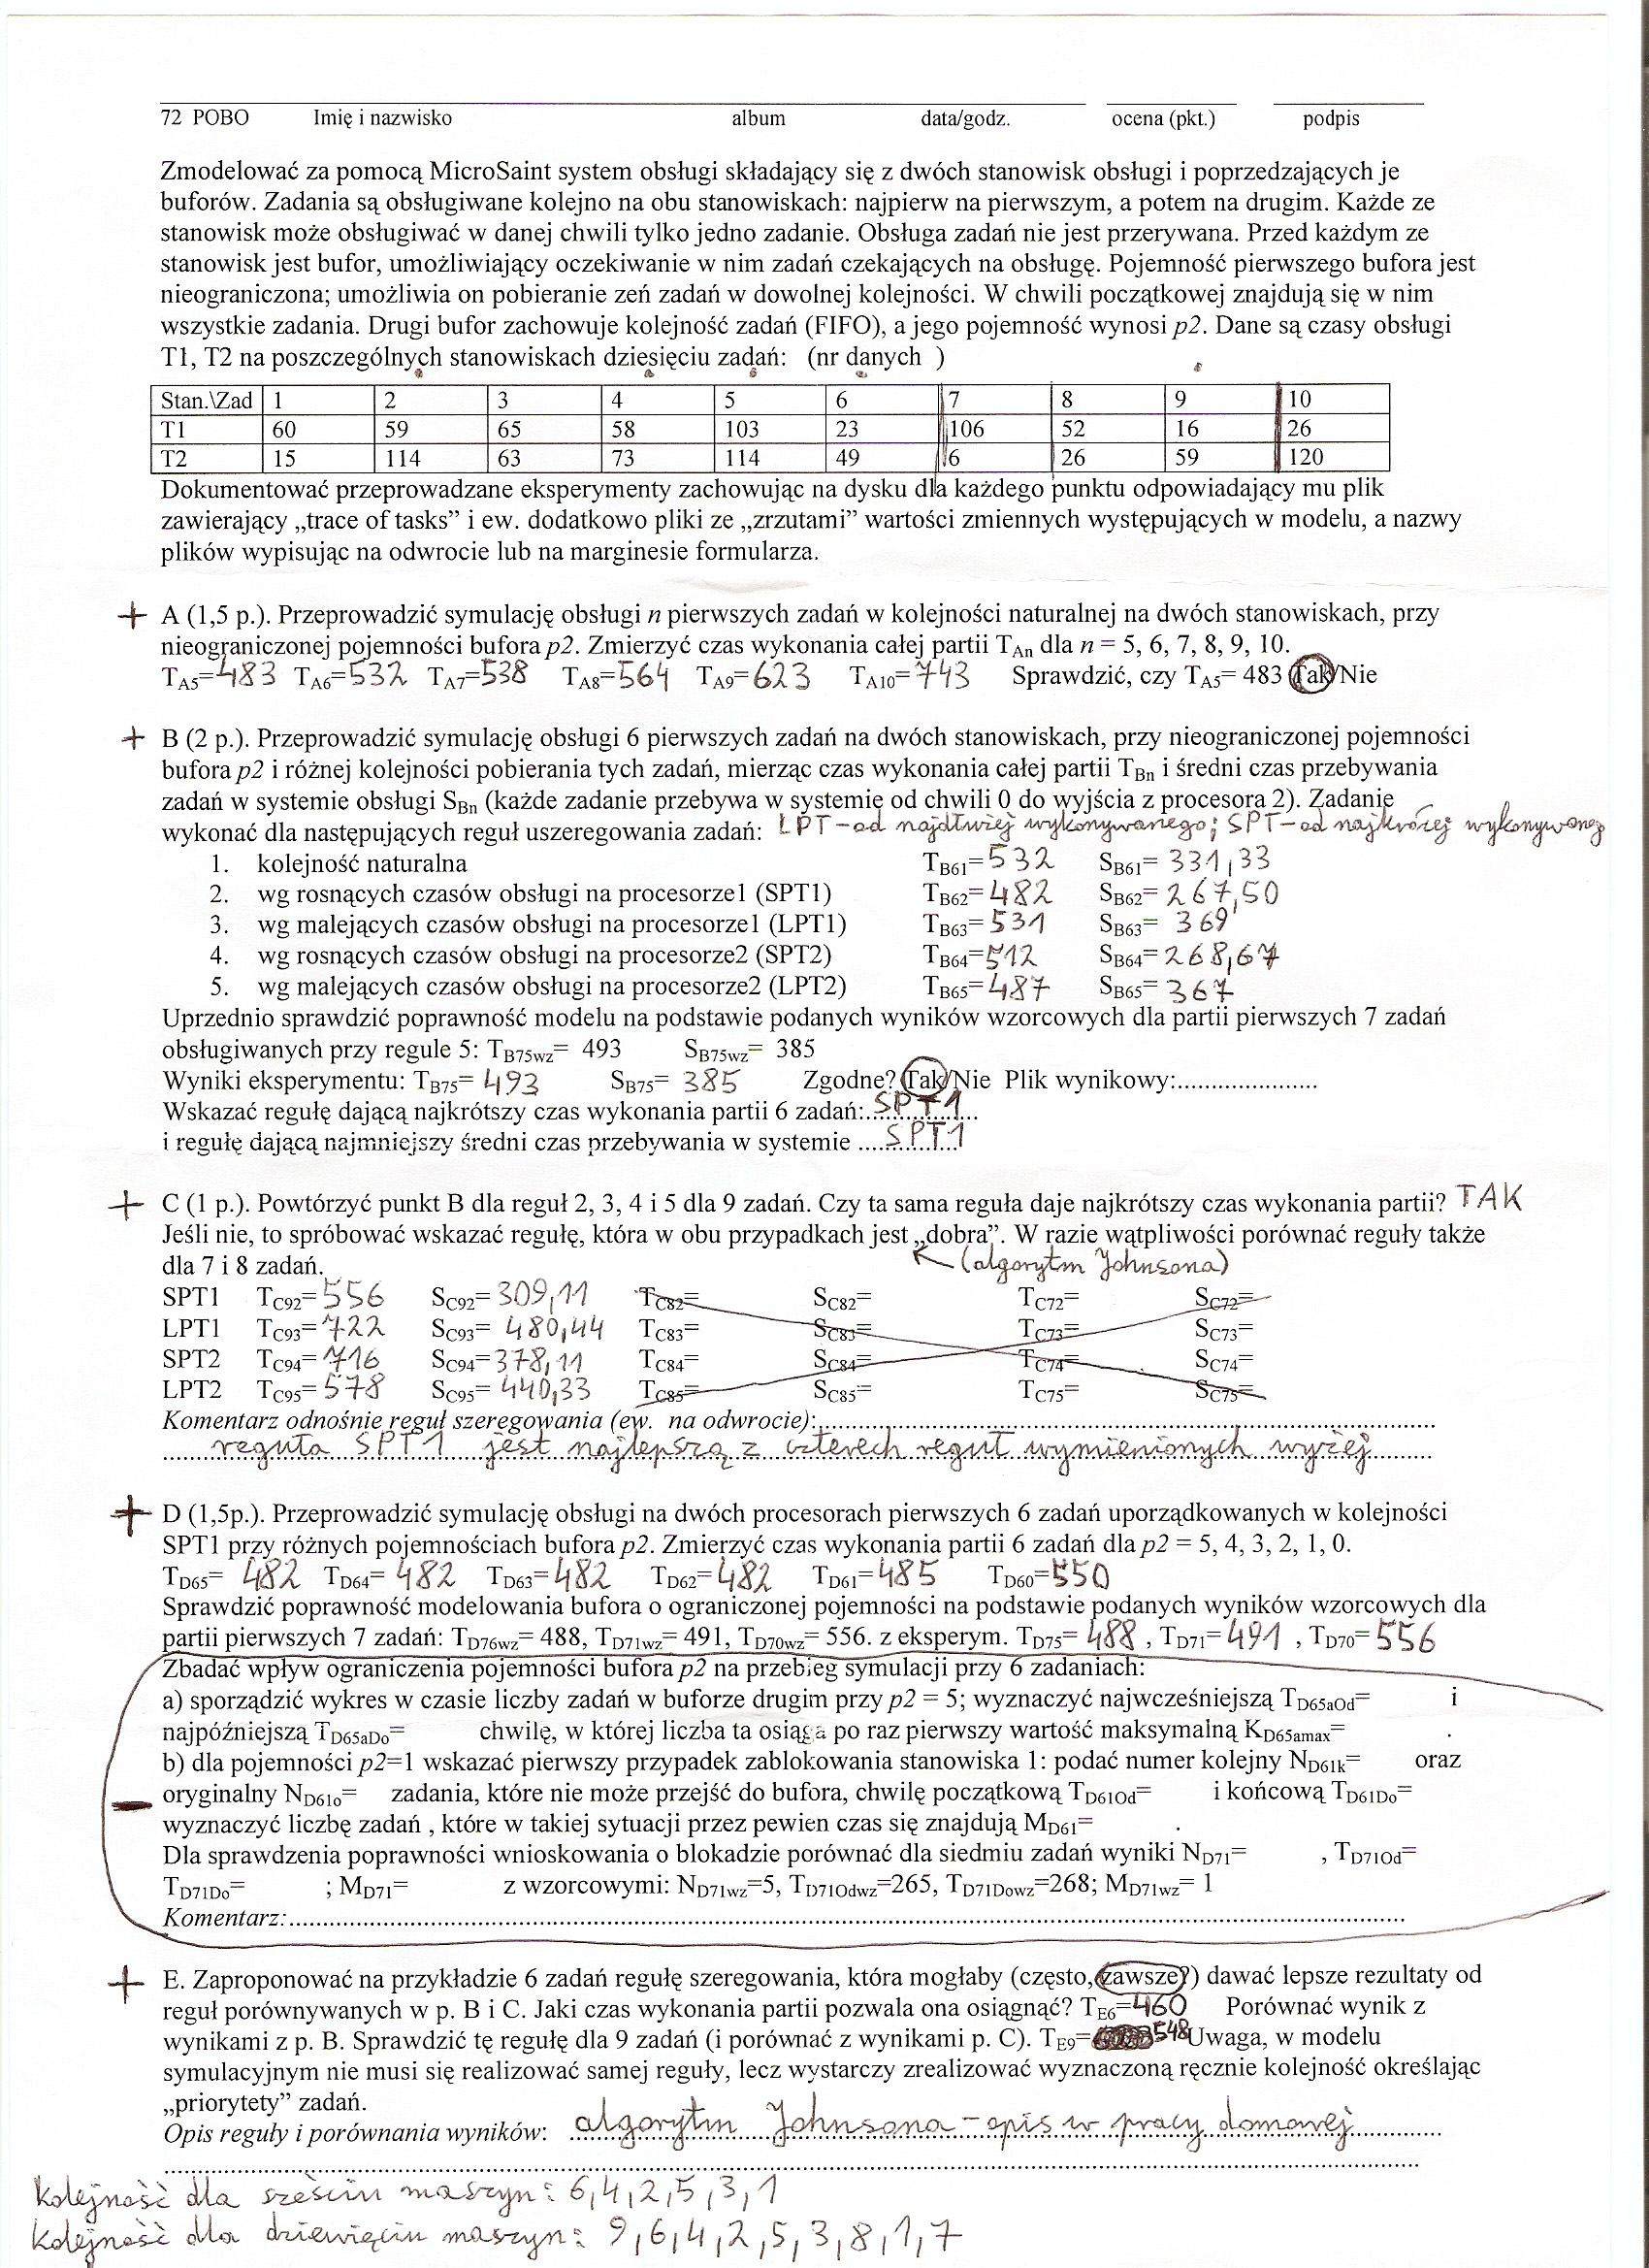 72 POBO Imię i nazwisko album data/godz. ocena (pkt.) podpis
Zmodelować za pomocą MicroSaint system obsługi składający się z dwóch stanowisk obsługi i poprzedzających je
buforów. Zadania są obsługiwane kolejno na obu stanowiskach: najpierw na pierwszym, a potem na drugim. Każde ze
stanowisk może obsługiwać w danej chwili tylko jedno zadanie. Obsługa zadań nie jest przerywana. Przed każdym ze
stanowisk jest bufor, umożliwiający oczekiwanie w nim zadań czekających na obsługę. Pojemność pierwszego bufora jest
nieograniczona; umożliwia on pobieranie zeń zadań w dowolnej kolejności. W chwili początkowej znajdują się w nim
wszystkie zadania. Drugi bufor zachowuje kolejność zadań (FIFO), a jego pojemność wynosi p2. Dane są czasy obsługi
T1, T2 na poszczególnych stanowiskach dziesięciu zadań: (nr danych )
Stan.\Zad 1 2 3 4 5 6 7 8 9 10
T1 60 59 65 58 103 23 106 52 16 26
T2 15 114 63 73 114 49 6 26 59 120
Dokumentować przeprowadzane eksperymenty zachowując na dysku dla każdego punktu odpowiadający mu plik
zawierający „trace of tasks” i ew. dodatkowo pliki ze „zrzutami” wartości zmiennych występujących w modelu, a nazwy
plików wypisując na odwrocie lub na marginesie formularza.
+ A (1,5 p.). Przeprowadzić symulację obsługi n pierwszych zadań w kolejności naturalnej na dwóch stanowiskach, przy
nieograniczonej pojemności bufora p2. Zmierzyć czas wykonania całej partii TAn dla n = 5, 6, 7, 8, 9, 10.
TA5=483 TA6=532 TA7=538 TA8=564 TA9=623 TA10=743 Sprawdzić, czy TA5= 483 Tak/Nie
+ B (2 p.). Przeprowadzić symulację obsługi 6 pierwszych zadań na dwóch stanowiskach, przy nieograniczonej pojemności
bufora p2 i różnej kolejności pobierania tych zadań, mierząc czas wykonania całej partii TBn i średni czas przebywania
zadań w systemie obsługi SBn (każde zadanie przebywa w systemie od chwili 0 do wyjścia z procesora 2). Zadanie
wykonać dla następujących reguł uszeregowania zadań: LPT - od najdłużej wykonywanego; SPT - od najkrócej wykonywanego
1. kolejność naturalna TB61=532 SB61= 331,33
2. wg rosnących czasów obsługi na procesorze1 (SPT1) TB62=482 SB62= 267,50
3. wg malejących czasów obsługi na procesorze1 (LPT1) TB63=531 SB63= 369
4. wg rosnących czasów obsługi na procesorze2 (SPT2) TB64=512 SB64=268,67
5. wg malejących czasów obsługi na procesorze2 (LPT2) TB65=487 SB65= 367
Uprzednio sprawdzić poprawność modelu na podstawie podanych wyników wzorcowych dla partii pierwszych 7 zadań
obsługiwanych przy regule 5: TB75wz= 493 SB75wz= 385
Wyniki eksperymentu: TB75= 493 SB75= 385 Zgodne? Tak/Nie Plik wynikowy:......................
Wskazać regułę dającą najkrótszy czas wykonania partii 6 zadań:..SPT1...
i regułę dającą najmniejszy średni czas przebywania w systemie ....SPT1
+ C (1 p.). Powtórzyć punkt B dla reguł 2, 3, 4 i 5 dla 9 zadań. Czy ta sama reguła daje najkrótszy czas wykonania partii? TAK
Jeśli nie, to spróbować wskazać regułę, która w obu przypadkach jest „dobra”. W razie wątpliwości porównać reguły także
dla 7 i 8 zadań. (algorytm Johnsona)
SPT1 TC92=556 SC92= 309,11 TC82= SC82= TC72= SC72=
LPT1 TC93=722 SC93= 480,44 TC83= SC83= TC73= SC73=
SPT2 TC94=716 SC94=378,11 TC84= SC84= TC74= SC74=
LPT2 TC95=578 SC95= 440,33 TC85= SC85= TC75= SC75=
Komentarz odnośnie reguł szeregowania (ew. na odwrocie):..........
reguła SPT1 jest najlepszą z czterech reguł wymienionych wyżej
+ D (1,5p.). Przeprowadzić symulację obsługi na dwóch procesorach pierwszych 6 zadań uporządkowanych w kolejności
SPT1 przy różnych pojemnościach bufora p2. Zmierzyć czas wykonania partii 6 zadań dla p2 = 5, 4, 3, 2, 1, 0.
TD65= 482 TD64= 482 TD63=482 TD62=482 TD61=485 TD60=550
Sprawdzić poprawność modelowania bufora o ograniczonej pojemności na podstawie podanych wyników wzorcowych dla
partii pierwszych 7 zadań: TD76wz= 488, TD71wz= 491, TD70wz= 556. z eksperym. TD75= 488 , TD71=491 , TD70=556
Zbadać wpływ ograniczenia pojemności bufora p2 na przebieg symulacji przy 6 zadaniach:
a) sporządzić wykres w czasie liczby zadań w buforze drugim przy p2 = 5; wyznaczyć najwcześniejszą TD65aOd= i
najpóźniejszą TD65aDo= chwilę, w której liczba ta osiąga po raz pierwszy wartość maksymalną KD65amax= .
b) dla pojemności p2=1 wskazać pierwszy przypadek zablokowania stanowiska 1: podać numer kolejny ND61k= oraz
- oryginalny ND61o= zadania, które nie może przejść do bufora, chwilę początkową TD61Od= i końcową TD61Do=
wyznaczyć liczbę zadań , które w takiej sytuacji przez pewien czas się znajdują MD61= .
Dla sprawdzenia poprawności wnioskowania o blokadzie porównać dla siedmiu zadań wyniki ND71= , TD71Od=
TD71Do= ; MD71= z wzorcowymi: ND71wz=5, TD71Odwz=265, TD71Dowz=268; MD71wz= 1
Komentarz:..........
+ E. Zaproponować na przykładzie 6 zadań regułę szeregowania, która mogłaby (często, zawsze?) dawać lepsze rezultaty od
reguł porównywanych w p. B i C. Jaki czas wykonania partii pozwala ona osiągnąć? TE6=460 Porównać wynik z
wynikami z p. B. Sprawdzić tę regułę dla 9 zadań (i porównać z wynikami p. C). TE9= 548 Uwaga, w modelu
symulacyjnym nie musi się realizować samej reguły, lecz wystarczy zrealizować wyznaczoną ręcznie kolejność określając
„priorytety” zadań.
Opis reguły i porównania wyników: algorytm Johnsona - opis w pracy domowej
Kolejność dla sześciu maszyn: 6,4,2,5,3,1
Kolejność dla dziewięciu maszyn: 9,6,4,2,5,3,8,1,7